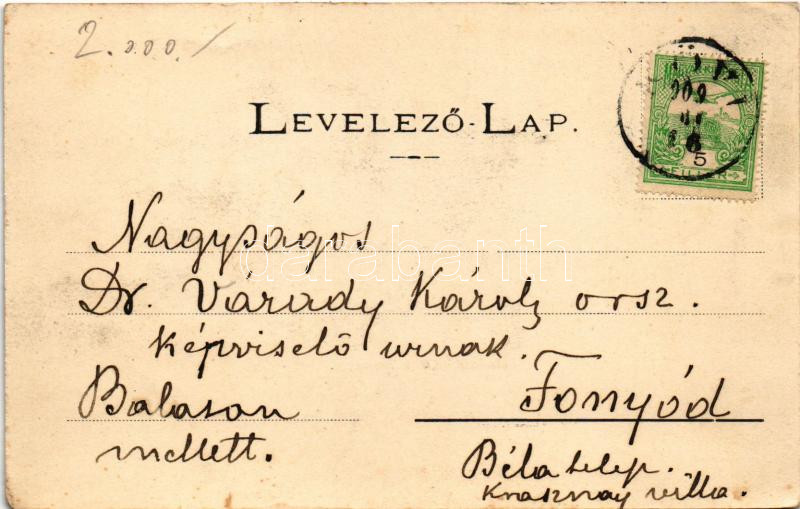 2.000./
LEVELEZŐ-LAP.
5
FILLÉR
Nagyságos
darabanth
Dr. Várady Károly orsz.
képviselő urnak.
Balaton
mellett.
Fonyód
Béla telep.
Krasznay villa.